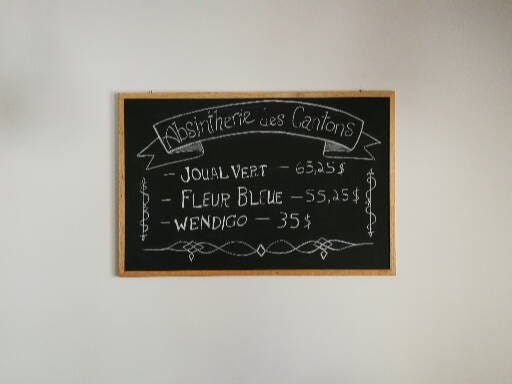 Absintherie des Cantons
- JOUAL VERT - 63,25$
- FLEUR BLEUE - 55,25$
- WENDIGO - 35$